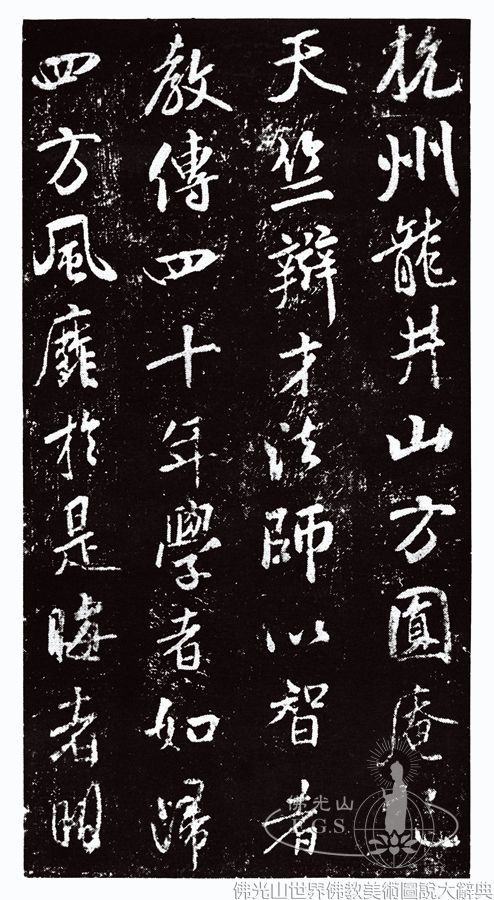 杭州龍井山方圓庵記
天竺辯才法師以智者
教傳四十年學者如歸
四方風靡於是晦者明
佛光山
F.G.S.
佛光山世界佛教美術圖說大辭典